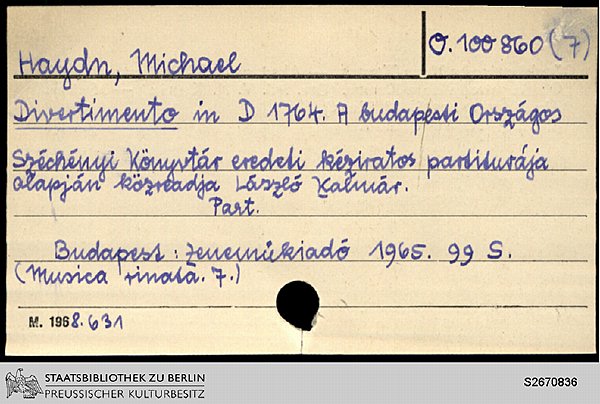 Haydn, Michael
O. 100 860 (7)
Divertimento in D 1764. A budapesti Országos
Széchényi Könyvtár eredeti kéziratos partiturája
alapján közreadja László Kalmár.
Part.
Budapest: Zeneműkiadó 1965. 99 S.
(Musica rinata. 7.)
M. 1968.631
STAATSBIBLIOTHEK ZU BERLIN
PREUSSISCHER KULTURBESITZ
S2670836